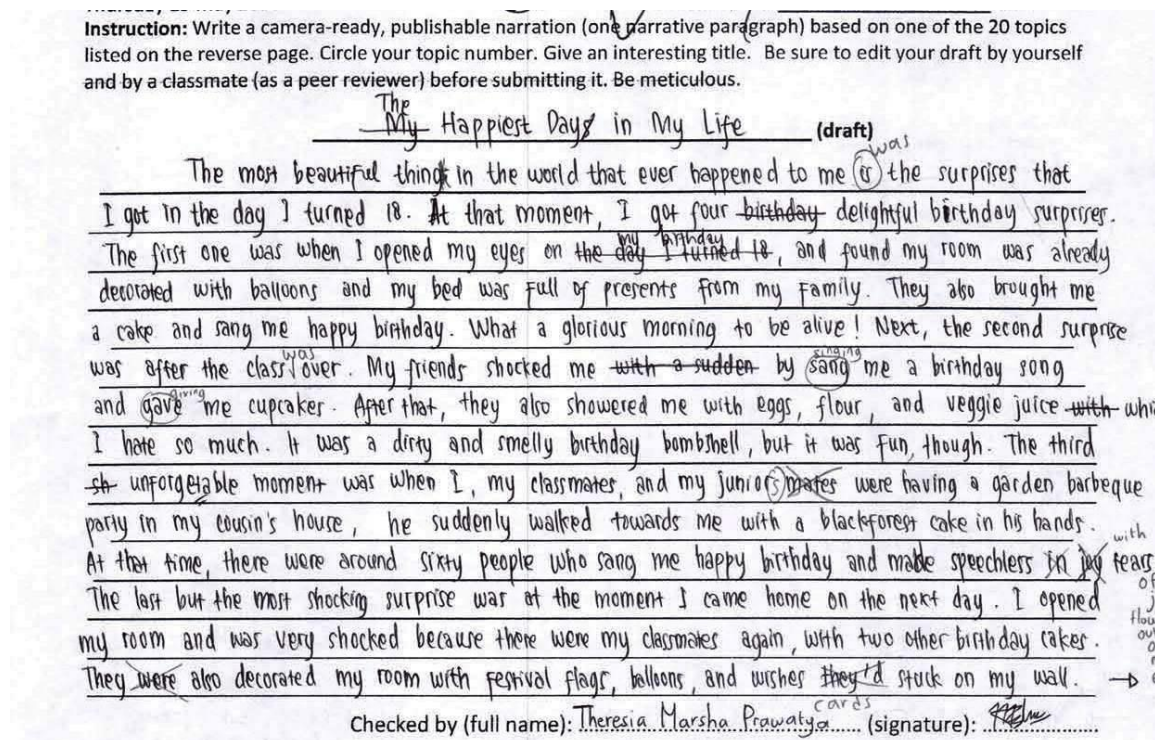 Instruction: Write a camera-ready, publishable narration (one narrative paragraph) based on one of the 20 topics
listed on the reverse page. Circle your topic number. Give an interesting title. Be sure to edit your draft by yourself
and by a classmate (as a peer reviewer) before submitting it. Be meticulous.
The
My Happiest Days in My Life (draft)
was
The most beautiful thing in the world that ever happened to me is the surprises that
I got in the day I turned 18. At that moment, I got four birthday delightful birthday surprises.
my birthday
The first one was when I opened my eyes on the day I turned 18, and found my room was already
decorated with balloons and my bed was full of presents from my family. They also brought me
a cake and sang me happy birthday. What a glorious morning to be alive! Next, the second surprise
was singing
was after the class over. My friends shocked me with a sudden by sang me a birthday song
giving
and gave me cupcakes. After that, they also showered me with eggs, flour, and veggie juice with
I hate so much. It was a dirty and smelly birthday bombshell, but it was fun, though. The third
sh unforgetable moment was when I, my classmates, and my juniors mates were having a garden barbeque
party in my cousin's house, he suddenly walked towards me with a blackforest cake in his hands.
with
At that time, there were around sixty people who sang me happy birthday and made speechless in joy tears
of
The last but the most shocking surprise was at the moment I came home on the next day. I opened
my room and was very shocked because there were my classmates again, with two other birthday cakes.
They were also decorated my room with festival flags, balloons, and wishes they'd stuck on my wall. →
cards
Checked by (full name): Theresia Marsha Prawatya (signature):